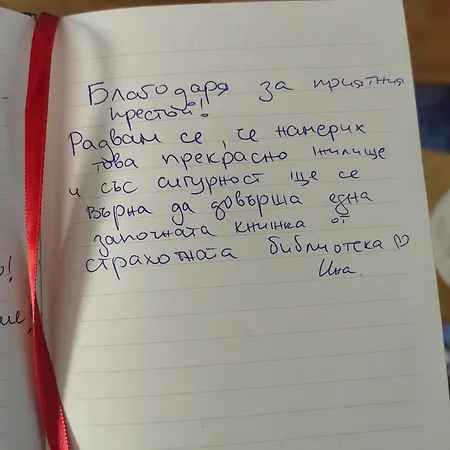 Благодаря за приятния
престой!
Радвам се, че намерих
това прекрасно жилище
и със сигурност ще се
върна да довърша една
започната книжка от
страхотната библиотека ♡
Ина.